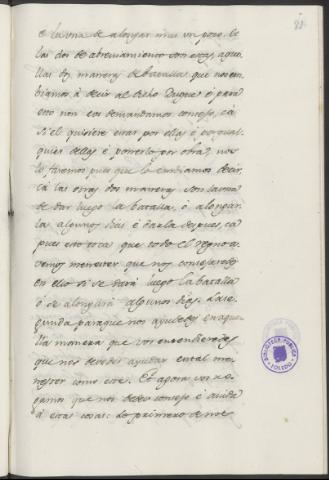 e la una de alongar mas un poco. e
las dos de abreviamiento son estas, aque
llas dos maneras de batalla que nos em
biamos à decir al dicho Duque è para
esto non vos demandamos consejo, cà
si èl quisiere estar por ellas è por qual
quier dellas è ponerlo por obra, nos
lo faremos pues que lo embiamos decir,
cà las otras dos maneras son la una
de dar luego la batalla, ò alongar
la algunos dias è darla despues, cà
pues esto toca que todo el regno a
vemos menester que nos consejaredes
en ello si se darà luego la batalla
ò se alongarà algunos dias. La se
gunda para que nos ayudedes en aque
lla manera que vos entendieredes
que nos devedes ayudar en tal me
nester como este. Et agora vos ro
gamos que nos dedes consejo è aiuda
à estas cosas: lo primero de nos
BIBLIOTECA PUBLICA
TOLEDO